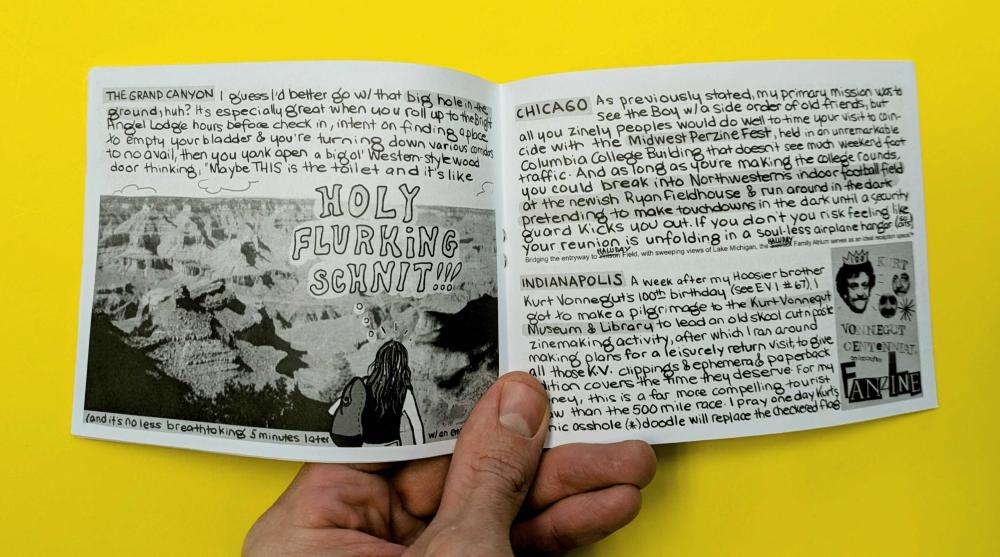 THE GRAND CANYON I guess I'd better go w/ that big hole in the
ground, huh? It's especially great when you roll up to the Bright
Angel Lodge hours before check in, intent on finding a place
to empty your bladder & you're turning down various corridors
to no avail, then you yank open a big ol' Western-style wood
door thinking, "Maybe THIS is the toilet and it's like
HOLY
FLURKING
SCHNIT!!!
(and it's no less breathtaking 5 minutes later
w/ an em
CHICAGO As previously stated, my primary mission was to
see the Boy w/ a side order of old friends, but
all you zinely peoples would do well to time your visit to coin-
cide with the Midwest Perzine Fest, held in an unremarkable
Columbia College Building that doesn't see much weekend foot
traffic. And as long as you're making the college rounds,
you could break into Northwestern's indoor football field
at the newish Ryan Fieldhouse & run around in the dark
pretending to make touchdowns in the dark until a security
guard kicks you out. If you don't you risk feeling like
your reunion is unfolding in a soul-less airplane hangar
HALLIDAY HALLIDAY
Bridging the entryway to Field, with sweeping views of Lake Michigan, the Family Atrium serves as an ideal reception space
INDIANAPOLIS A week after my Hoosier brother
Kurt Vonnegut's 100th birthday (see EVI #67), I
got to make a pilgrimage to the Kurt Vonnegut
Museum & Library to lead an old skool cut n paste
zinemaking activity, after which I ran around
making plans for a leisurely return visit, to give
all those K.V. clippings & ephemera & paperback
dition covers the time they deserve. For my
ney, this is a far more compelling tourist
w than the 500 mile race. I pray one day Kurt's
nic asshole (*) doodle will replace the checkered flag
KURT
VONNEGUT
CENTENNIAL
FANZINE